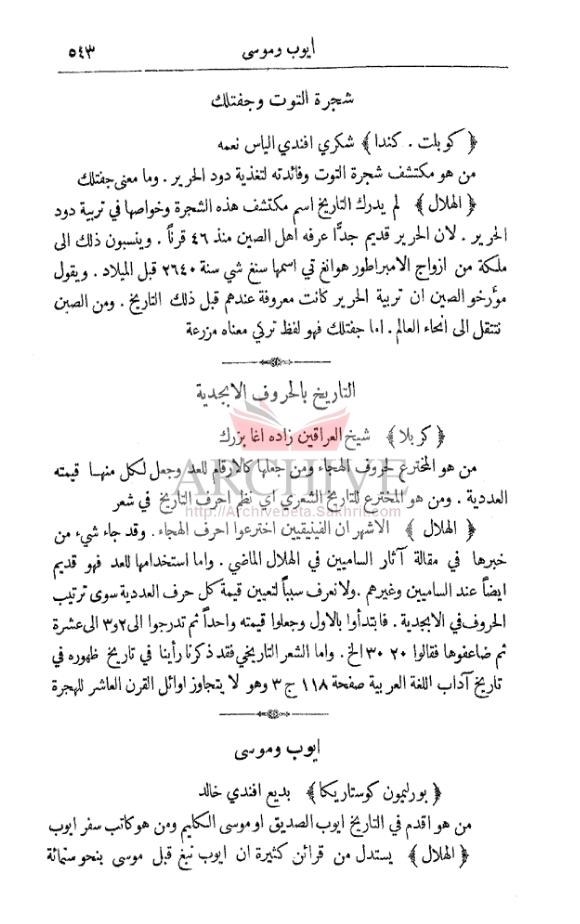 ايوب وموسى ٥٤٣
شجرة التوت وجفتلك
﴿كوبلت . كندا﴾ شكري افندي الياس نعمه
من هو مكتشف شجرة التوت وفائدته لتغذية دود الحرير . وما معنى جفتلك
﴿الهلال﴾ لم يدرك التاريخ اسم مكتشف هذه الشجرة وخواصها في تربية دود
الحرير . لان الحرير قديم جدًّا عرفه اهل الصين منذ ٤٦ قرناً . وينسبون ذلك الى
ملكة من ازواج الامبراطور هوانغ تي اسمها سنغ شي سنة ٢٦٤٠ قبل الميلاد . ويقول
مؤرخو الصين ان تربية الحرير كانت معروفة عندهم قبل ذلك التاريخ . ومن الصين
تنتقل الى انحاء العالم . اما جفتلك فهو لفظ تركي معناه مزرعة
التاريخ بالحروف الابجدية
﴿كربلا﴾ شيخ العراقين زاده اغا بزرك
من هو المخترع لحروف الهجاء ومن جعلها كالارقام للعد وجعل لكل منها قيمته
ARCHIVE
العددية . ومن هو المخترع للتاريخ الشعري اي نظم احرف التاريخ في شعر
http://Archivebeta.Sakhrit.com
﴿الهلال﴾ الاشهر ان الفينيقيين اخترعوا احرف الهجاء . وقد جاء شيء من
خبرها في مقالة آثار الساميين في الهلال الماضي . واما استخدامها للعد فهو قديم
ايضاً عند الساميين وغيرهم . ولا نعرف سبباً لتعيين قيمة كل حرف العددية سوى ترتيب
الحروف في الابجدية . فابتدأوا بالاول وجعلوا قيمته واحداً ثم تدرجوا الى ٢ و٣ الى عشرة
ثم ضاعفوها فقالوا ٢٠ ٣٠ الخ . واما الشعر التاريخي فقد ذكرنا رأينا في تاريخ ظهوره في
تاريخ آداب اللغة العربية صفحة ١١٨ ج ٣ وهو لا يتجاوز اوائل القرن العاشر للهجرة
ايوب وموسى
﴿بورليمون كوستاريكا﴾ بديع افندي خالد
من هو اقدم في التاريخ ايوب الصديق او موسى الكليم ومن هو كاتب سفر ايوب
﴿الهلال﴾ يستدل من قرائن كثيرة ان ايوب نبغ قبل موسى بنحو ستمائة